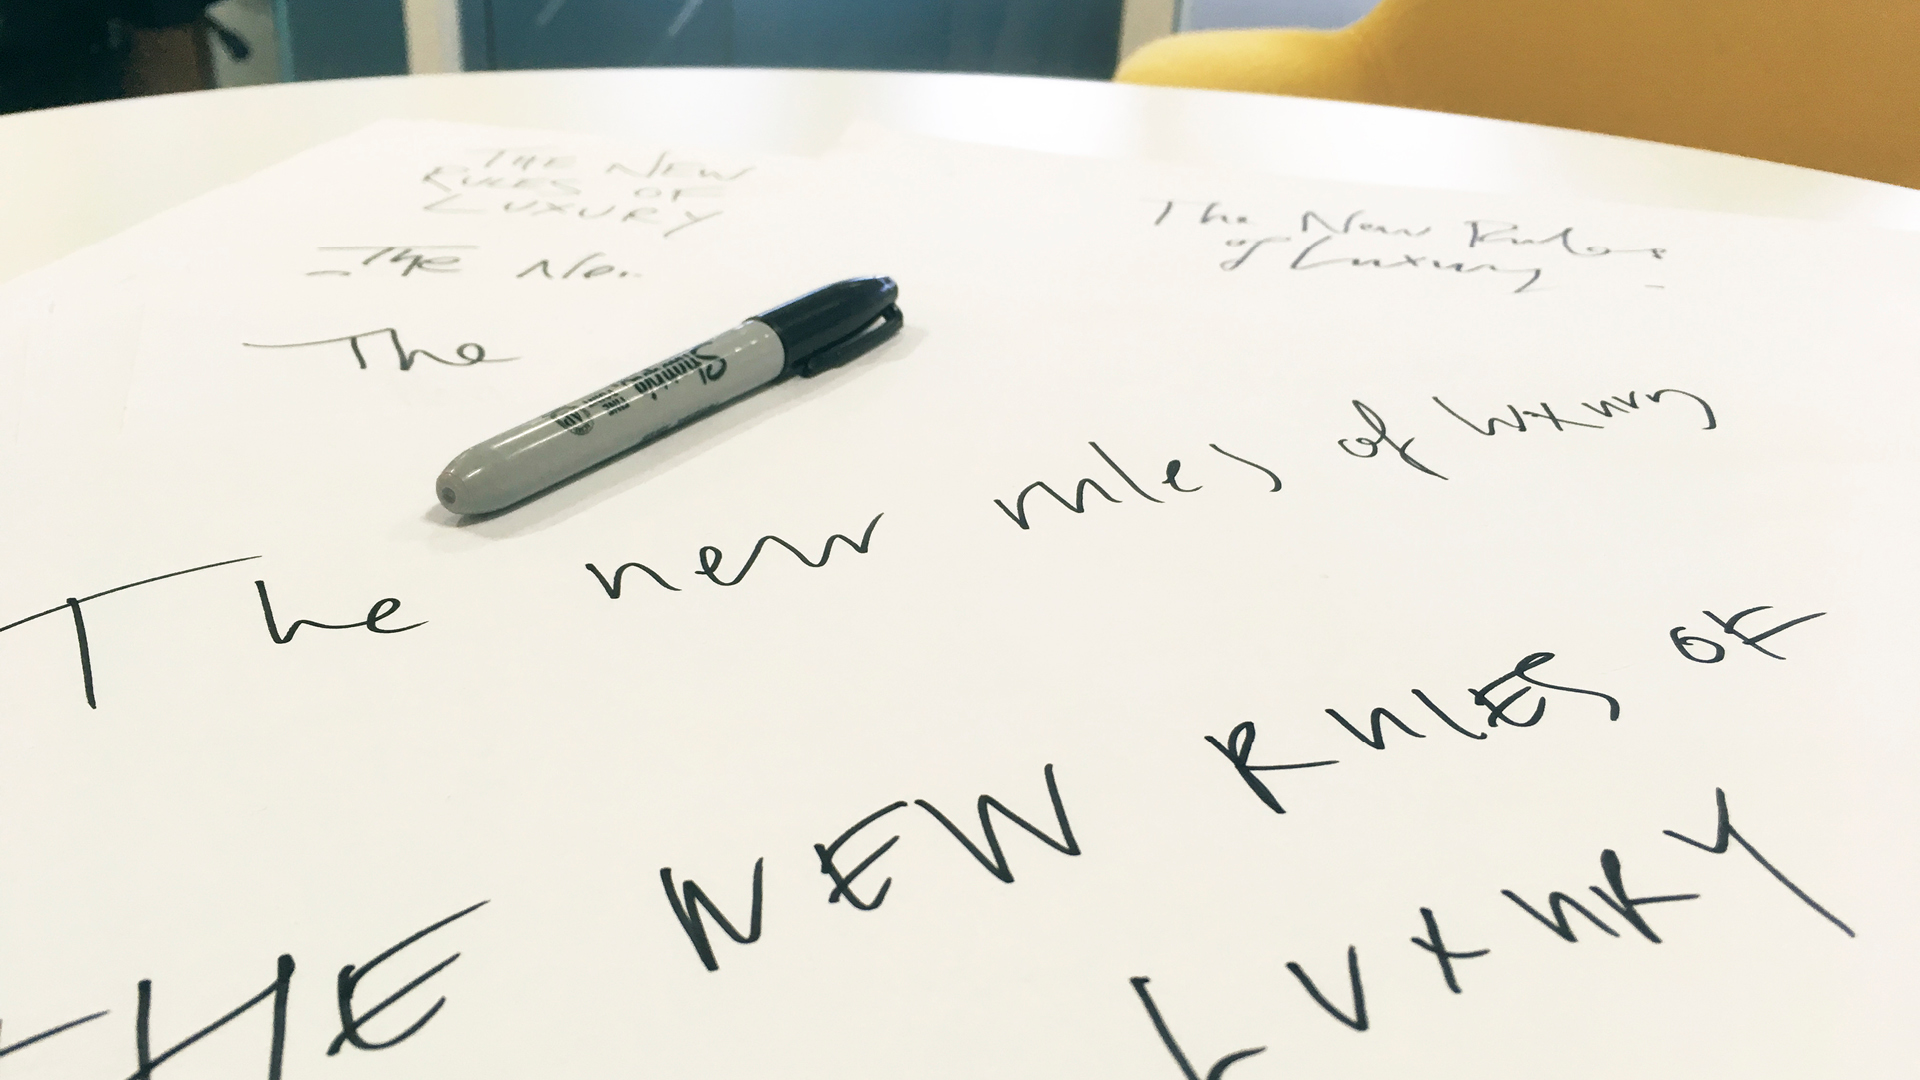 THE NEW
RULES OF
LUXURY
The New Rules
of Luxury
The Ne
The
Sharpie
FINE
The new rules of luxury
THE NEW RULES OF
LUXURY